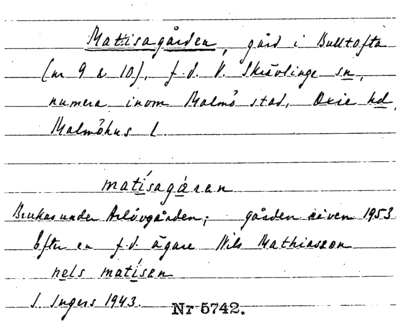 Matisagården, gård i Bulltofta
(nr 9 a 10), f.d. V. Skrävlinge sn,
numera inom Malmö stad, Oxie hd,
Malmöhus l.
matísagáran
Brukas under Arlövgården; gården riven 1953.
Efter en f.d. ägare Nils Mathiasson
nels matísen
I. Ingers 1943. Nr 5742.